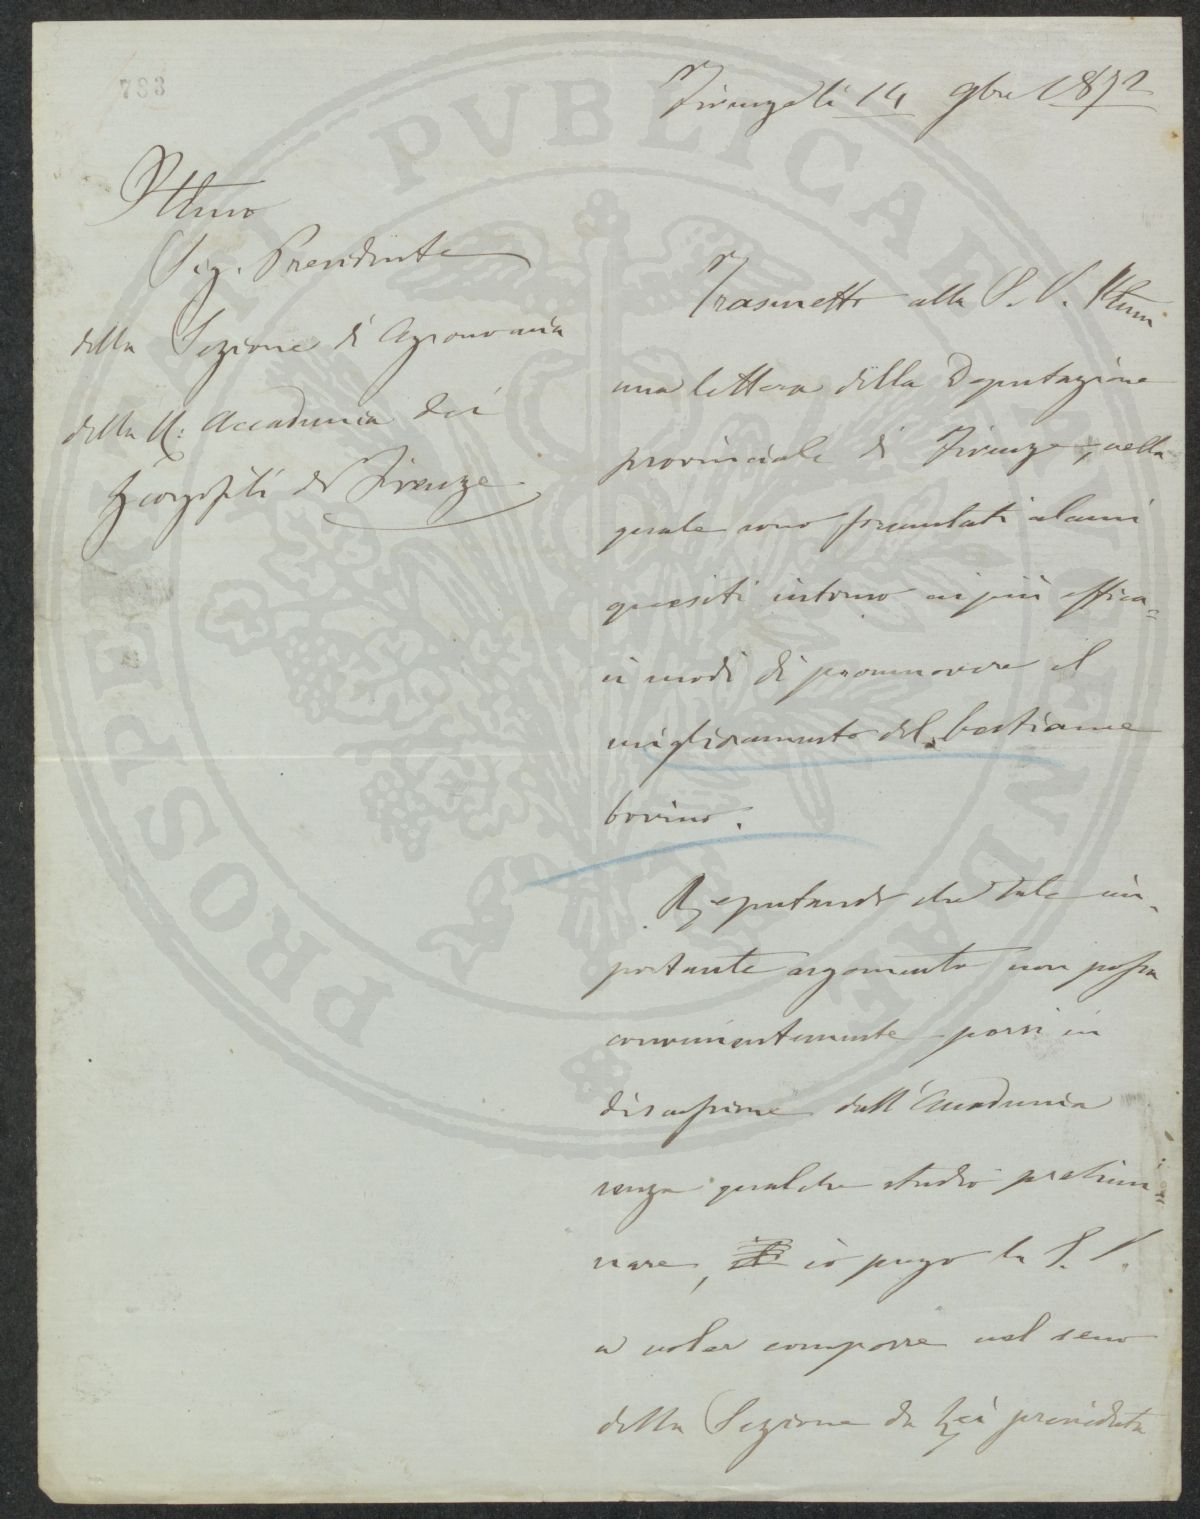 783
Firenze li 14 9bre 1872
Illmo
Sig. Presidente
della Sezione di Agronomia
della R: Accademia dei
Georgofili di Firenze
Trasmetto alla S. V. Illma
una lettera della Deputazione
provinciale di Firenze, nella
quale sono formulati alcuni
quesiti intorno ai più effica=
ci modi di promuovere il
miglioramento del bestiame
bovino.
Reputando che tale im-
portante argomento non possa
convenientemente porsi in
discussione dall'Accademia
senza qualche studio prelimi=
nare, io prego la S. V.
a voler comporre nel seno
della Sezione da Lei presieduta
PROSPERITATI PVBLICAE AVGENDAE